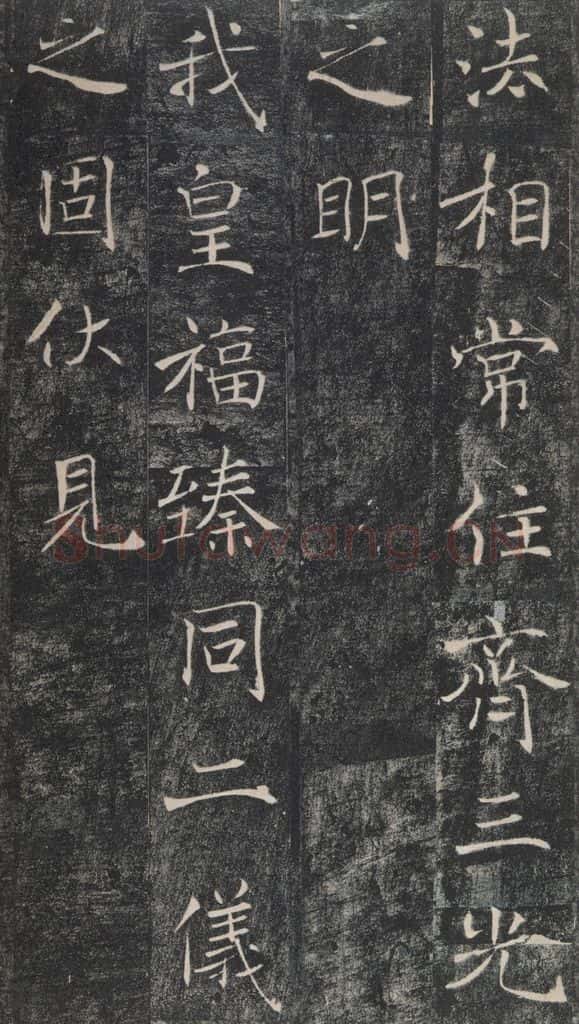 法相常住齊三光
之明
我皇福臻同二儀
之固伏見
Shufawang.CN